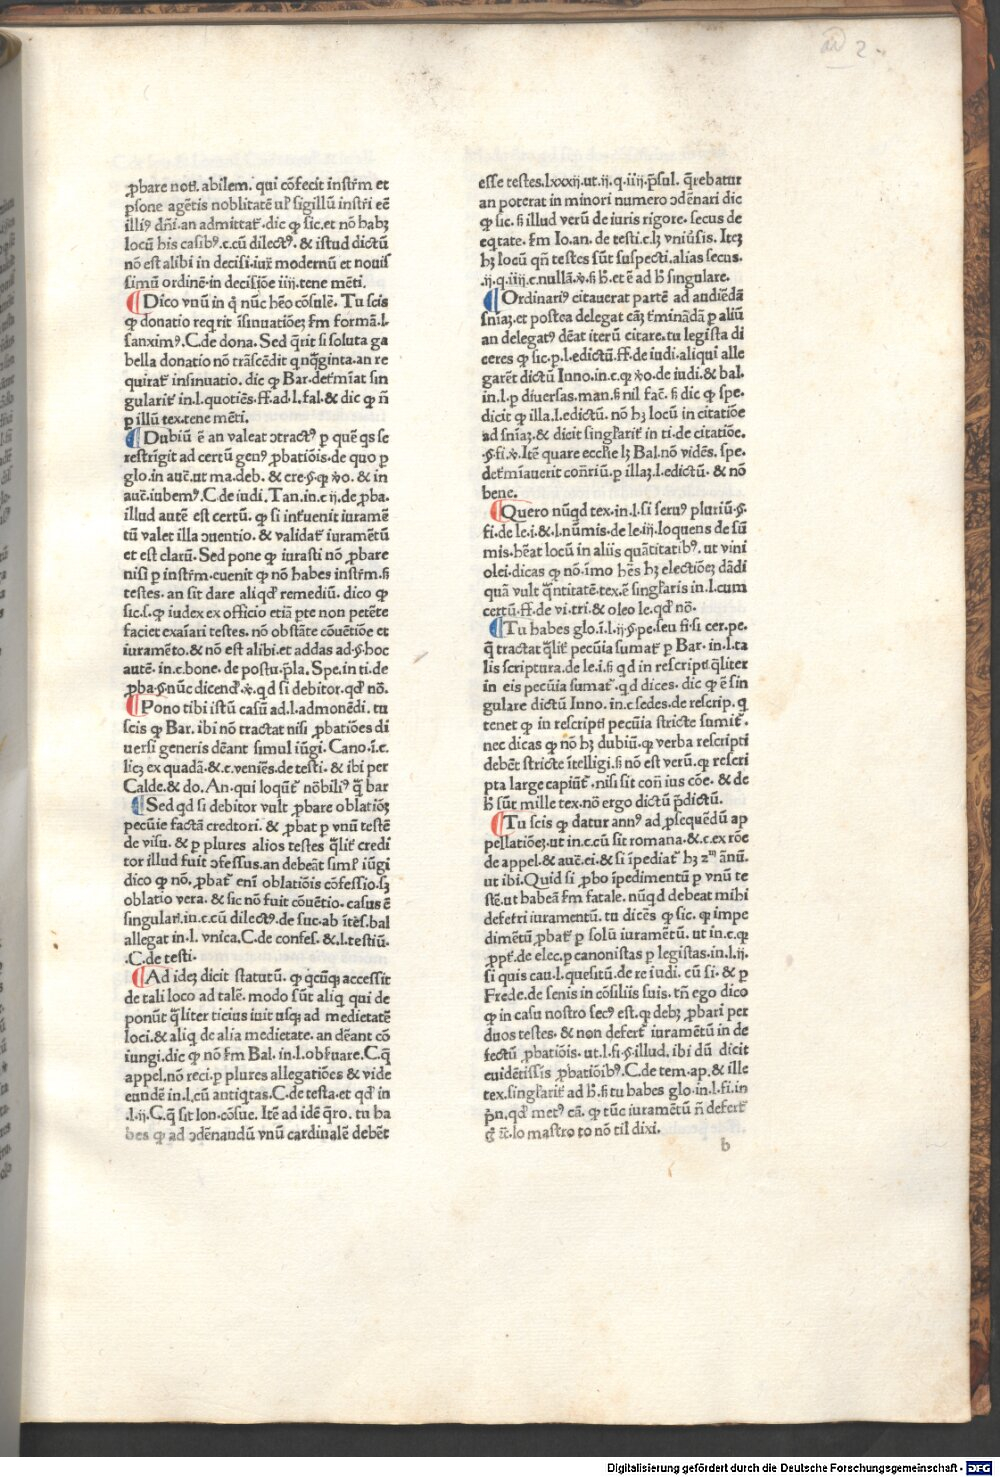 ꝓbare not̃. abilem. qui cõfecit instr̃m et
ꝑsone agẽtis noblitatẽ ul̛ sigillũ instr̃i eẽ
illiꝰ dñi. an admittat̃. dic ꝙ sic. et nõ habꝫ
locũ his casibꝰ. c. cũ dilectꝰ. & istud dictũ
nõ est alibi in decisi. iuꝝ modernũ et nouis
simũ ordinẽ. in decisiõe iiij. tene mẽti.
¶ Dico vnũ in q̃ nũc hẽo cõsulẽ. Tu scis
ꝙ donatio reqrit ĩsinuatiõeꝫ f̃m formã. l.
sanximꝰ. C. de dona. Sed q̃rit si soluta ga
bella donatio nõ trãscẽdit qnq̃ginta. an re
quirat̃ insinuatio. dic ꝙ Bar. det̃miat sin
gularit̃ in. l. quotiẽs. ff. ad. l. fal. & dic ꝙ ñ
ꝑ illũ tex. tene mẽti.
¶ Dubiũ ẽ an valeat ↄtractꝰ ꝑ quẽ qs se
restrĩgit ad certũ genꝰ ꝓbatiõis. de quo ꝑ
glo. in auc̃. ut ma. deb. & cre. §. ꝙ ꝟo. & in
auc̃. iubemꝰ. C. de iudi. Tan. in. c ij. de ꝓba.
illud autẽ est certũ. ꝙ si int̃uenit iuramẽ
tũ valet illa ↄuentio. & validat̃ iuramẽtũ
et est clarũ. Sed pone ꝙ iurasti nõ ꝓbare
nisi ꝑ instr̃m. euenit ꝙ nõ habes instr̃m. s̃
testes. an sit dare aliqd̛ remediũ. dico ꝙ
sic. s. ꝙ iudex ex officio etiã pte non petẽte
faciet exaĩari testes. nõ obstãte cõuẽtiõe et
iuramẽto. & nõ est alibi. et addas ad. §. hoc
autẽ. in. c. bone. de postu. p̃la. Spe. in ti. de
ꝓba. §. nũc dicend̛. ꝟ. qd si debitor. qd̛ nõ.
¶ Pono tibi istũ casũ ad. l. admonẽdi. tu
scis ꝙ Bar. ibi nõ tractat nisi ꝓbatiões di
uersi generis dẽant simul iũgi. Cano. ĩ. c.
licꝫ ex quadã. &. c. veniẽs. de testi. & ibi per
Calde. & do. An. qui loqũt̃ nõbiliꝰ q̃ bar
¶ Sed qd si debitor vult ꝓbare oblatiõꝫ
pecũie factã credtori. & ꝓbat ꝑ vnũ testẽ
de visu. & ꝑ plures alios testes q̃lit̃ credi
tor illud fuit ↄfessus. an debeãt siml̛ iũgi
dico ꝙ nõ. ꝓbat̃ eni oblatiõis cõfessio. sꝫ
oblatio vera. & sic nõ fuit cõuẽtio. casus ẽ
singulari. in. c. cũ dilectꝰ. de suc. ab ĩtes̃. bal
allegat in. l. vnica. C. de confes. &. l. testiũ.
.C. de testi.
¶ Ad ideꝫ dicit statutũ. ꝙ qcũqꝫ accessit
de tali loco ad talẽ. modo sũt aliq qui de
ponũt q̃liter ticius iuit usqꝫ ad medietatẽ
loci. & aliq de alia medietate. an dẽant cõ
iungi. dic ꝙ nõ f̃m Bal. in. l. obs̃uare. C. q̃
appel. nõ reci. ꝑ plures allegatiões & vide
eundẽ in. l. cũ antiqtas. C. de testa. et qd̛ in
.l. ij. C. q̃ sit lon. cõsue. Itẽ ad idẽ q̃ro. tu ha
bes ꝙ ad ↄdẽnandũ vnũ cardinalẽ debẽt
esse testes. lxxij. ut. ij. q. iiij. p̃sul. q̃rebatur
an poterat in minori numero ↄdẽnari dic
ꝙ sic. s̃ illud verũ de iuris rigore. secus de
eqtate. f̃m Io. an. de testi. c. lꝫ vniũsis. Iteꝫ
hꝫ locũ qñ testes sũt suspecti. alias secus.
.ij. q. iiij. c. nullã. ꝟ. s̃ h̃. et ẽ ad h̃ singulare.
¶ Ordinariꝰ citauerat partẽ ad audiẽdã
sn̄iaꝫ. et postea delegat cãꝫ t̃minãdã ꝑ aliũ
an delegatꝰ dẽat iterũ citare. tu legista di
ceres ꝙ sic. ꝑ. l. edictũ. ff. de iudi. aliqui alle
garẽt dictũ Inno. in. c. ꝙ ꝟo. de iudi. & bal.
in. l. ꝑ diuersas. man. s̃ nil fac̃. s̃ dic ꝙ spe.
dicit ꝙ illa. l. edictũ. nõ hꝫ locũ in citatiõe
ad sn̄iaꝫ. & dicit singl̛arit̃ in ti. de citatiõe.
.§. fi. ꝟ. Itẽ quare eccl̛ie lꝫ Bal. nõ vidẽs. spe.
det̃miauerit con̄riũ. ꝑ illaꝫ. l. edictũ. & nõ
bene.
¶ Quero nũqd tex. in. l. si seruꝰ pluriũ. §.
fi. de le. i. &. l. nũmis. de le. iij. loquens de sũ
mis. hẽat locũ in aliis quãtitatibꝰ. ut vini
olei. dicas ꝙ nõ. ĩmo hẽs hꝫ electiõeꝫ dãdi
quã vult q̃ntitatẽ. tex. ẽ singl̛aris in. l. cum
certũ. ff. de vi. tri. & oleo le. qd̛ nõ.
¶ Tu habes glo. ĩ. l. ij. §. pe. seu fi. si cer. pe.
q̃ tractat q̃lit̃ pecũia sumat̃ ꝑ Bar. in. l. ta
lis scriptura. de le. i. s̃ qd in rescripti q̃liter
in eis pecũia sumat̃. qd dices. dic ꝙ ẽ sin
gulare dictũ Inno. in. c. sedes. de rescrip. q
tenet ꝙ in rescripti pecũia stricte sumit̃.
nec dicas ꝙ nõ hꝫ dubiũ. ꝙ verba rescripti
debẽt stricte ĩtelligi. s̃ nõ est verũ. ꝙ rescri
pta large capiũt̃. nisi sit con̄ ius cõe. & de
h̃ sũt mille tex. nõ ergo dictũ p̃dictũ.
¶ Tu scis ꝙ datur annꝰ ad ꝓsequẽdũ ap
pellatiõeꝫ. ut in. c. cũ sit romana. &. c. ex rõe
de appel. & auc̃. ei. & si ĩpediat̃ hꝫ 2ᵐ ãnũ.
ut ibi. Quid si ꝓbo ĩpedimentũ ꝑ vnũ te
stẽ. ut habeã f̃m fatale. nũqd debeat mihi
deferri iuramentũ. tu dicẽs ꝙ sic. ꝙ impe
dimẽtũ ꝓbat̃ ꝑ solũ iuramẽtũ. ut in. c. ꝙ
ꝓpt̃. de elec. ꝑ canonistas ꝑ legistas. in. l. ij.
si quis cau. l. quesitũ. de re iudi. cũ si. & ꝑ
Frede. de senis in cõsiliis suis. tñ ego dico
ꝙ in casu nostro secꝰ est. ꝙ debꝫ ꝓbari per
duos testes. & non defert̃ iuramẽtũ in de
fectũ ꝓbatiõis. ut. l. fi. §. illud. ibi dũ dicit
euidẽtissis ꝓbatiõibꝰ. C. de tem. ap. & ille
tex. singl̛arit̃ ad h̃. s̃ tu habes glo. in. l. fi. in
p̃n. qd̛ metꝰ cã. ꝙ tũc iuramẽtũ ñ defert̃
lo mastro to nõ til dixi.
b
Digitalisierung gefördert durch die Deutsche Forschungsgemeinschaft - DFG